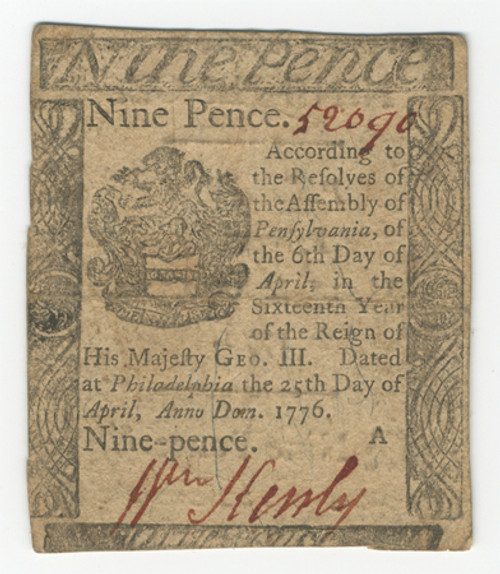 Nine Pence
Nine Pence. 52090
According to
the Reſolves of
the Aſſembly of
Penſylvania, of
the 6th Day of
April, in the
Sixteenth Year
of the Reign of
His Majeſty GEO. III. Dated
at Philadelphia the 25th Day of
April, Anno Dom. 1776.
Nine-pence. A
Wm